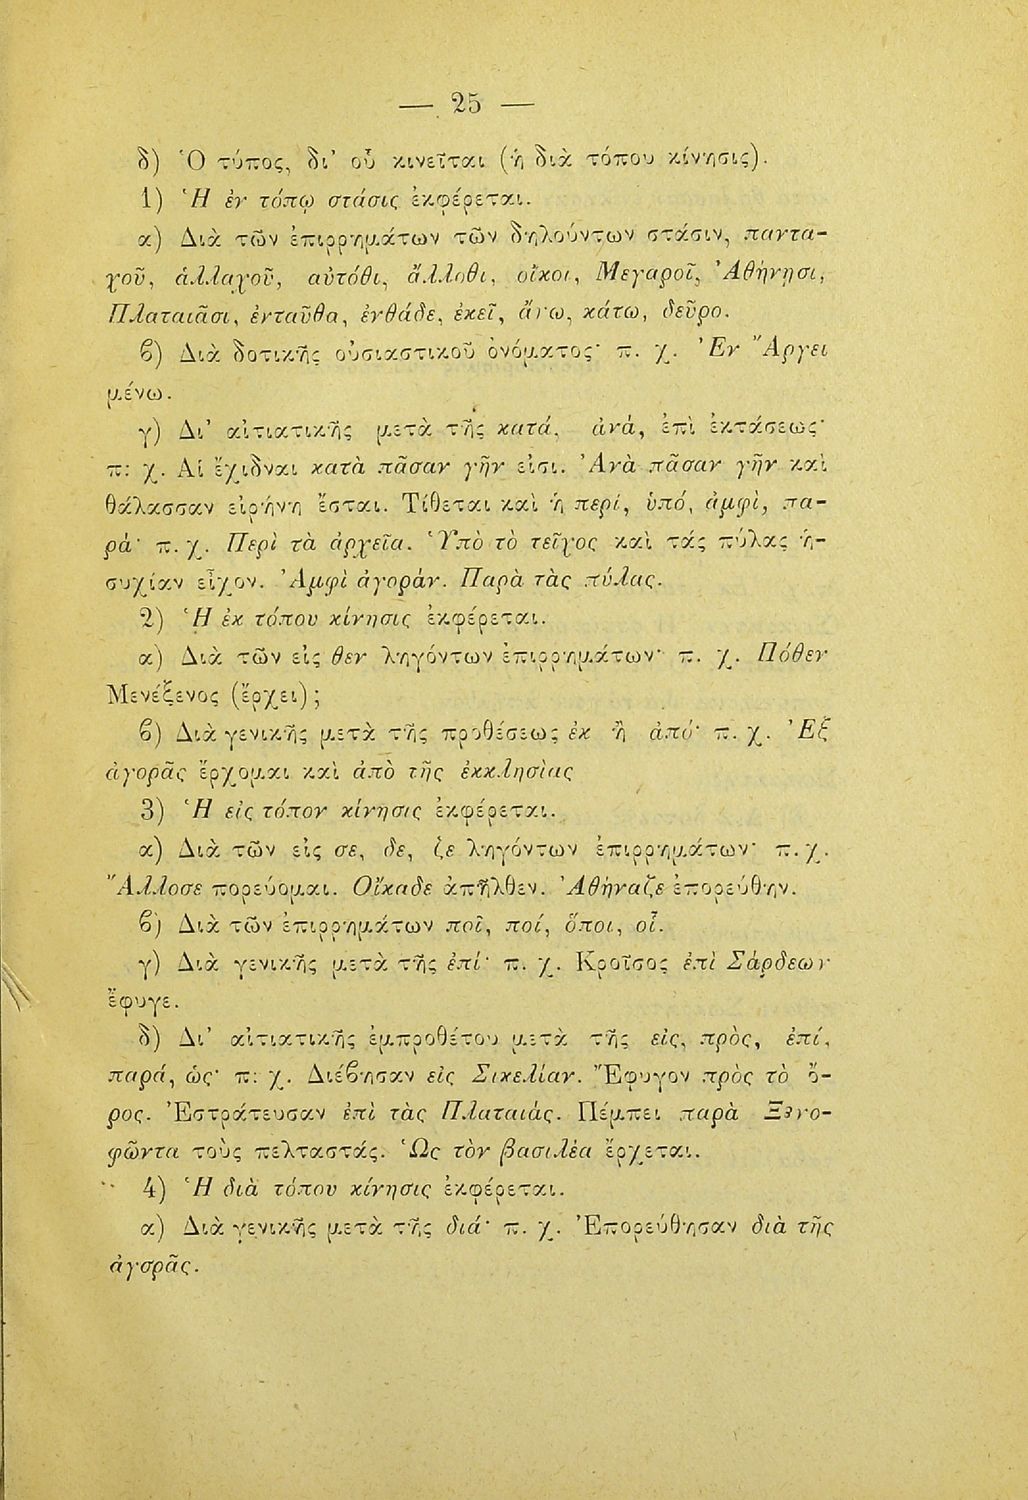 — 25 —
δ) Ὁ τύπος, δι' οὗ κινεῖται (ἡ διὰ τόπου κίνησις).
1) Ἡ ἐν τόπῳ στάσις ἐκφέρεται.
α) Διὰ τῶν ἐπιρρημάτων τῶν δηλούντων στάσιν, παντα-
χοῦ, ἀλλαχοῦ, αὐτόθι, ἄλλοθι, οἴκοι, Μεγαροῖ, Ἀθήνησι,
Πλαταιᾶσι, ἐνταῦθα, ἐνθάδε, ἐκεῖ, ἄνω, κάτω, δεῦρο.
ϐ) Διὰ δοτικῆς οὐσιαστικοῦ ὀνόματος· π. χ. Ἐν Ἄργει
μένω.
γ) Δι' αἰτιατικῆς μετὰ τῆς κατά, ἀνά, ἐπὶ ἐκτάσεως·
π: χ. Αἱ ἔχιδναι κατὰ πᾶσαν γῆν εἰσι. Ἀνὰ πᾶσαν γῆν καὶ
θάλασσαν εἰρήνη ἔσται. Τίθεται καὶ ἡ περί, ὑπό, ἀμφὶ, πα-
ρά· π. χ. Περὶ τὰ ἀρχεῖα. Ὑπὸ τὸ τεῖχος καὶ τάς πύλας ἡ-
συχίαν εἶχον. Ἀμφὶ ἀγοράν. Παρὰ τὰς πύλας.
2) Ἡ ἐκ τόπου κίνησις ἐκφέρεται.
α) Διὰ τῶν εἰς θεν ληγόντων ἐπιρρημάτων· π. χ. Πόθεν
Μενέξενος (ἔρχει);
ϐ) Διὰ γενικῆς μετὰ τῆς προθέσεως ἐκ ἢ ἀπό· π. χ. Ἐξ
ἀγορᾶς ἔρχομαι καὶ ἀπὸ τῆς ἐκκλησίας
3) Ἡ εἰς τόπον κίνησις ἐκφέρεται.
α) Διὰ τῶν εἰς σε, δε, ζε ληγόντων ἐπιρρημάτων· π. χ.
Ἄλλοσε πορεύομαι. Οἴκαδε ἀπῆλθεν. Ἀθήναζε ἐπορεύθην.
ϐ) Διὰ τῶν ἐπιρρημάτων ποῖ, ποί, ὅποι, οἷ.
γ) Διὰ γενικῆς μετὰ τῆς ἐπί· π. χ. Κροῖσος ἐπὶ Σάρδεων
ἔφυγε.
δ) Δι' αἰτιατικῆς ἐμπροθέτου μετὰ τῆς εἰς, πρὸς, ἐπί,
παρά, ὡς· π: χ. Διέϐησαν εἰς Σικελίαν. Ἔφυγον πρὸς τὸ ὄ-
ρος. Ἐστράτευσαν ἐπὶ τὰς Πλαταιάς. Πέμπει παρὰ Ξενο-
φῶντα τοὺς πελταστάς. Ὡς τὸν βασιλέα ἔρχεται.
4) Ἡ διὰ τόπου κίνησις ἐκφέρεται.
α) Διὰ γενικῆς μετὰ τῆς διά· π. χ. Ἐπορεύθησαν διὰ τῆς
ἀγορᾶς.